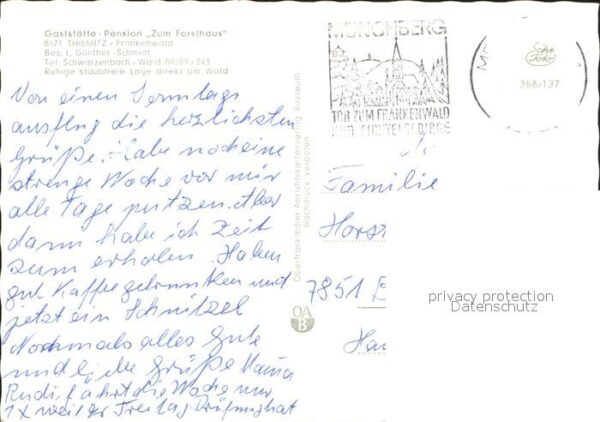 Gaststätte - Pension „Zum Forsthaus"
8671 THIEMITZ / Frankenwald
Bes. L. Günther-Schmidt
Tel. Schwarzenbach / Wald 09289 - 243
Ruhige staubfreie Lage direkt am Wald
Von einem Sonntags
ausflug die herzlichsten
Grüße. Habe noch eine
strenge Woche vor mir
alle Tage putzen. Aber
dann habe ich Zeit
zum erholen. Haben
gut Kaffee getrunken und
jetzt ein Schnitzel
Nochmals alles Gute
und liebe Grüße Maria
Rudi, fährt die Woche nur
1x weil er Freitag Prüfung hat
Oberfränkischer Ansichtskartenverlag Bayreuth
Nachdruck verboten
OA
B
MÜNCHBERG
TOR ZUM FRANKENWALD
UND FICHTELGEBIRGE
M
Echte
Foto
368/137
Familie
Horst
7851
Hau
privacy protection
Datenschutz